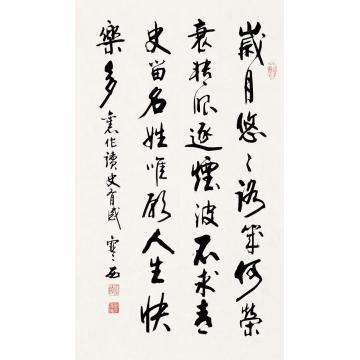 歲月悠悠路幾何榮
衰轉眼逐煙波不求青
史留名姓唯願人生快
樂多 舊作讀史有感 寒